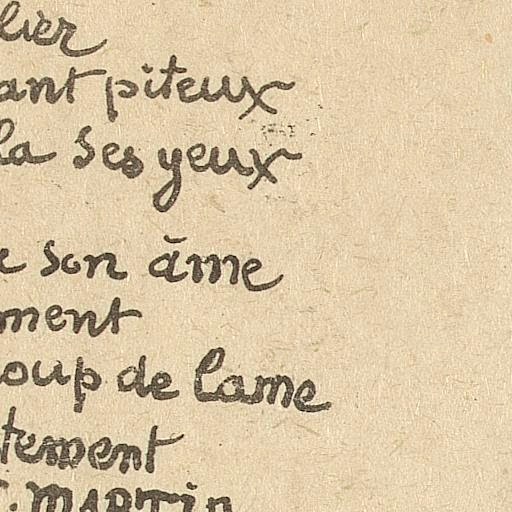 lier
ant piteux
la ses yeux
e son âme
ment
oup de lame
tement
. MARTIN